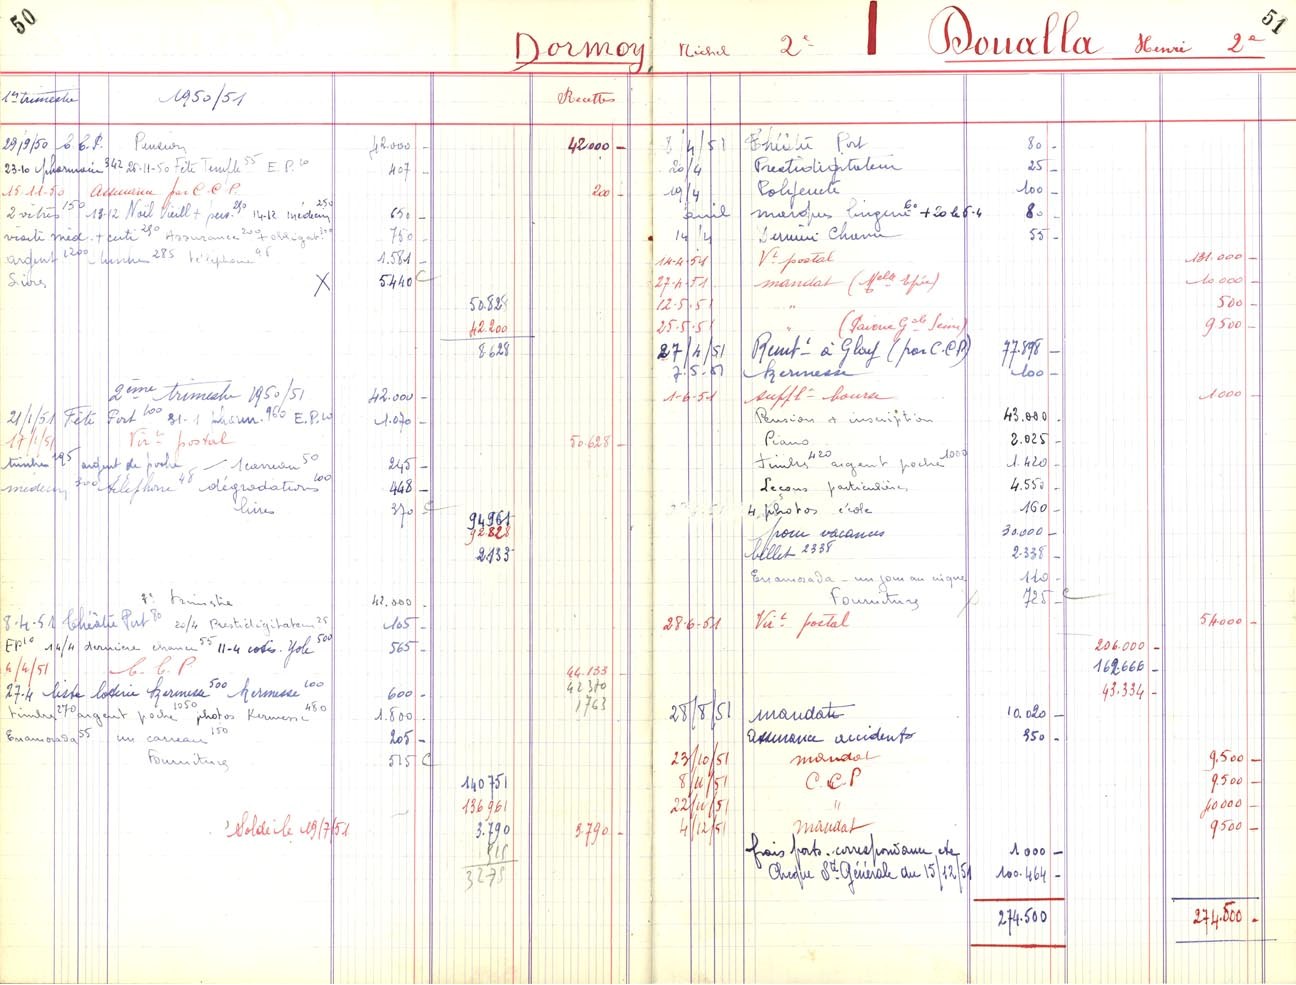 50
Dormoy Michel 2e
1er trimestre 1950/51 Recettes
29/9/50 C.C.P. Pension 42.000 - 42000 -
23-10 pharmacie 342 28-11-50 Fête Temple 55 E.P. 10 407 -
15-11-50 Assurance par C.C.P. 200 -
2 vitres 150 13-12 Noël Vieill + pers. 250 14-12 médecin 250 650 -
visite méd. + certi 250 Assurance 200 + obligat 300 750 -
argent 1200 timbres 285 téléphone 96 1.581 -
Livres X 5440 C
50.828
42.200
8628
2ème trimestre 1950/51 42.000 -
21/1/51 Fête Port 100 31-1 Pharm. 960 E.P. 10 1.070 -
17/1/51 Virt postal 50.628 -
timbre 195 argent de poche - 1 carreau 50 245 -
médecin 300 téléphone 48 dégradations 100 448 -
livres 370 C
94961
92828
2133
3e trimestre 42.000 -
8-4-51 Théâtre Port 80 20/4 Prestidigitateur 25 105 -
EP 10 14/4 dernière chance 55 11-4 cotis. Yole 500 565 -
4/4/51 C.C.P 44.133
27-4 liste loterie kermesse 500 kermesse 100 600 - 42370
timbre 270 argent poche 1050 photos Kermesse 480 1.800 - 1763
Enamorada 55 un carreau 150 205 -
Fournitures 515 C
140751
136961
Solde le 19/7/51 3.790 3.790 -
515
3275
51
Doualla Henri 2e
8/4/51 Théâtre Port 80 -
20/4 Prestidigitateur 25 -
19/4 Polyeucte 100 -
avril marques lingerie 60 + 20 le 6-4 80 -
14/4 Dernière Chance 55 -
14-4-51 Vt postal 131.000 -
27-4-51 mandat 10.000 -
12-5-51 " 500 -
25-5-51 " 9500 -
27/4/51 Rembt à Glay (par C.C.P) 77.898 -
7-5-51 kermesse 100 -
1-6-51 supplt bourse 1000 -
Pension + inscription 43.000 -
Piano 2.025 -
timbres 420 argent poche 1000 1.420 -
Leçons particulières 4.550 -
4 photos école 160 -
pour vacances 30.000 -
billet 2338 2.338 -
Enamorada - un jour au cirque 110 -
Fournitures 725 - C
28-6-51 Virt postal 54000 -
206.000 -
162.666 -
43.334 -
28/8/51 mandat 10.020 -
assurance accidents 350 -
23/10/51 mandat 9.500 -
8/11/51 C.C.P 9500 -
22/11/51 " 40000 -
4/12/51 mandat 9500 -
frais ports - correspondance etc 1000 -
Chèque Sté Générale du 15/12/51 100.464 -
274.500 274.500 -